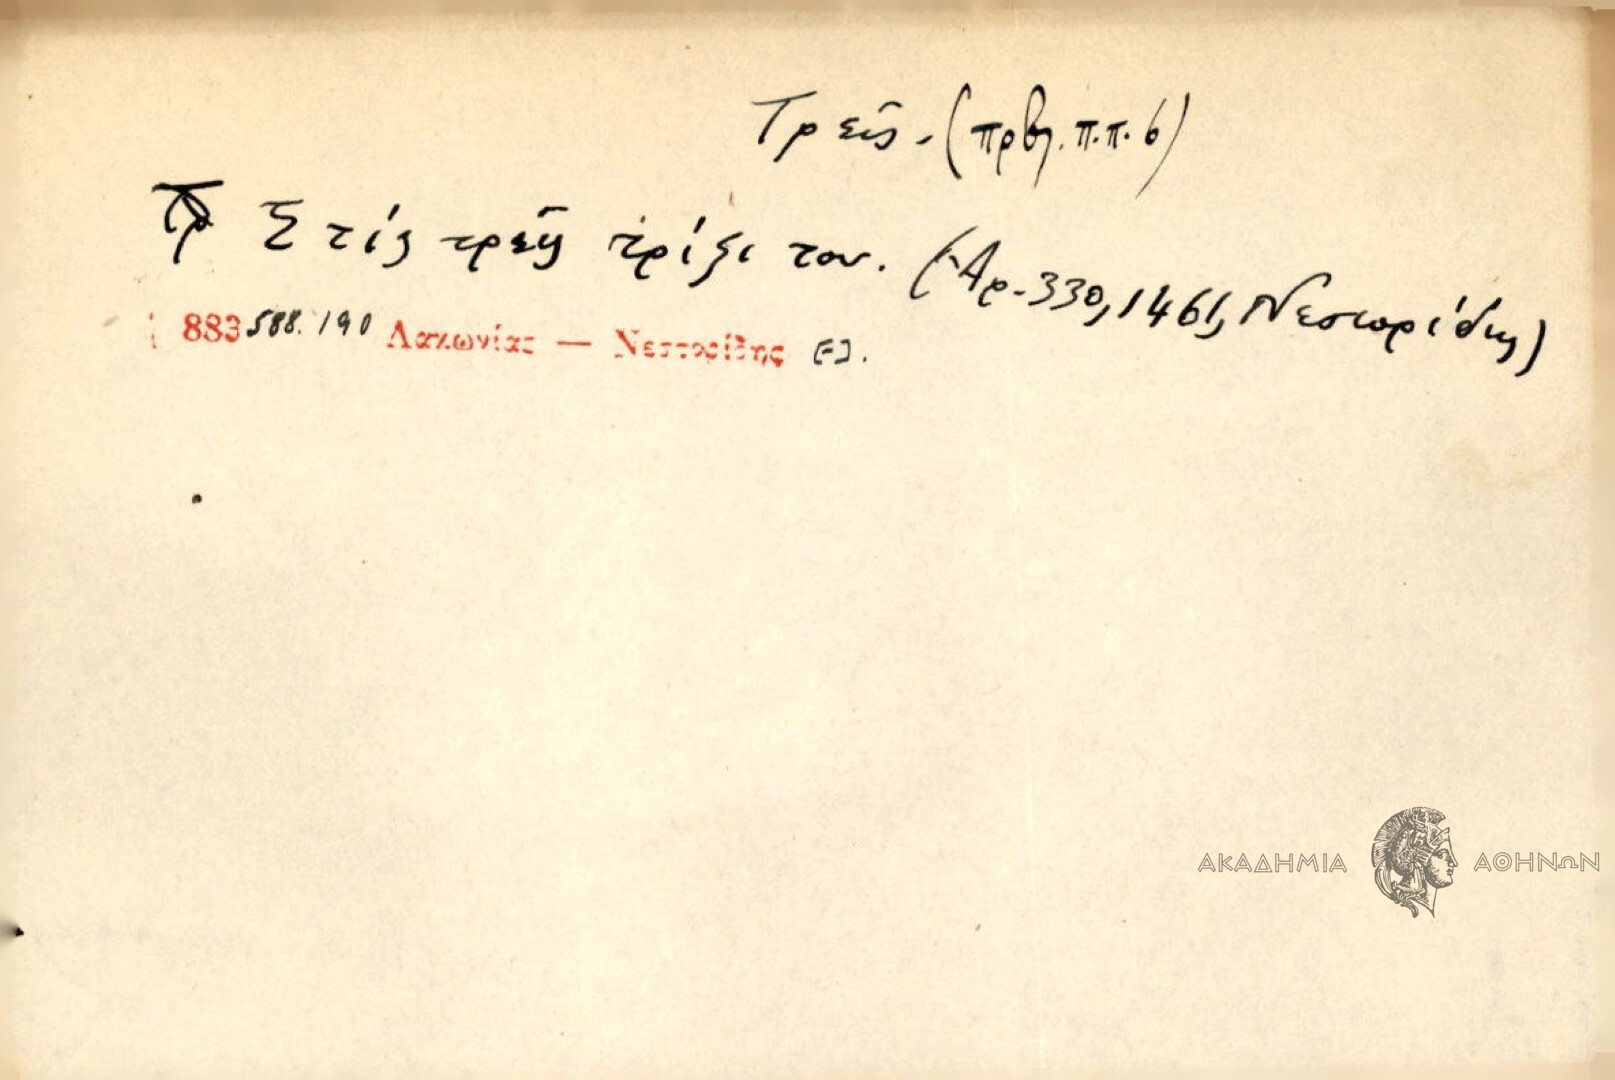 Τρεῖς. (πρβλ. π.π. 6)
Στίς τρεῖς τρίξι του. (Ἀρ. 330, 1461, Νεστορίδης)
883 588. 190 Λακωνίας — Νεστορίδης [-].
ΑΚΑΔΗΜΙΑ ΑΘΗΝΩΝ